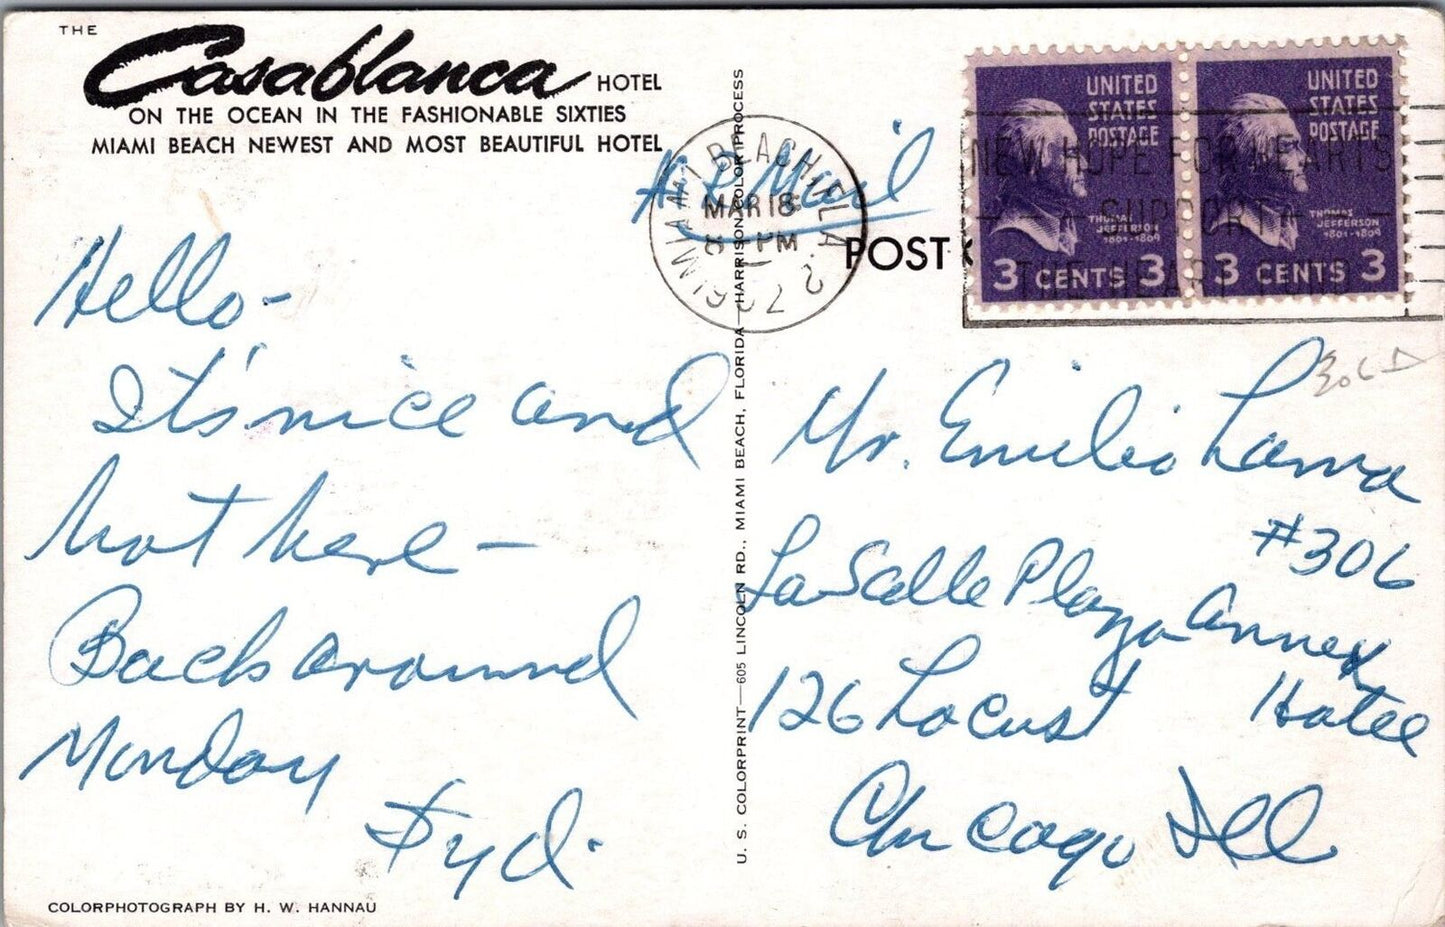 THE
Casablanca HOTEL
ON THE OCEAN IN THE FASHIONABLE SIXTIES
MIAMI BEACH NEWEST AND MOST BEAUTIFUL HOTEL
Hello-
It's nice and
hot here —
Back around
Monday
Syd.
COLORPHOTOGRAPH BY H. W. HANNAU
U. S. COLORPRINT—605 LINCOLN RD., MIAMI BEACH, FLORIDA—HARRISON COLOR PROCESS
Mail
MIAMI BEACH, FLA.
MAR 18
PM
POST
UNITED
STATES
POSTAGE
THOMAS
JEFFERSON
1801-1809
3 CENTS 3
UNITED
STATES
POSTAGE
THOMAS
JEFFERSON
1801-1809
3 CENTS 3
NEW HOPE FOR HEARTS
SUPPORT
THE HEART FUND
Mr. Emilio Lama
#306
LaSalle Plaza Annex
Hotel
126 Locust
Chicago Ill